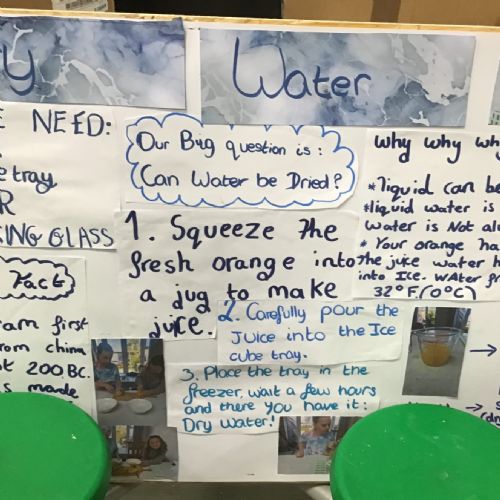 y Water
NEED:
tray
R
KING GLASS
Fact
am first
rom china
t 200 BC.
s made
Our Big question is:
Can Water be Dried?
1. Squeeze the
fresh orange into
a jug to make
juice.
2. Carefully pour the
Juice into the Ice
cube tray.
3. Place the tray in the
freezer, wait a few hours
and there you have it:
Dry Water!
why why wh
*liquid can be
*liquid water is
Water is Not al
* Your orange ha
the juice water h
into Ice. Water fr
32°F.(0°C)